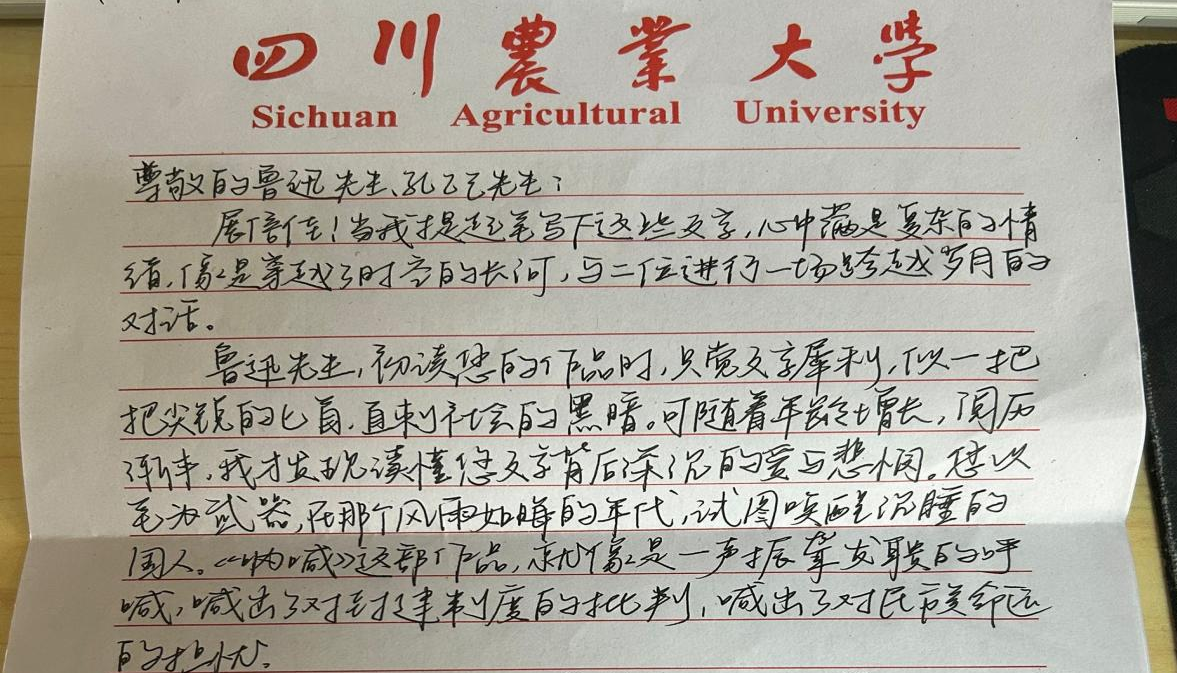 四川農業大學
Sichuan Agricultural University
尊敬的鲁迅先生、孔乙己先生：
展信佳！当我提起笔写下这些文字，心中满是复杂的情
绪，像是穿越了时空的长河，与二位进行一场跨越岁月的
对话。
鲁迅先生，初读您的作品时，只觉文字犀利，似一把
把尖锐的匕首，直刺社会的黑暗。可随着年龄增长，阅历
渐丰，我才发现读懂您文字背后深沉的爱与悲悯。您以
笔为武器，在那个风雨如晦的年代，试图唤醒沉睡的
国人。《呐喊》这部作品，就像是一声振聋发聩的呼
喊，喊出了对封建制度的批判，喊出了对民族命运
的担忧。